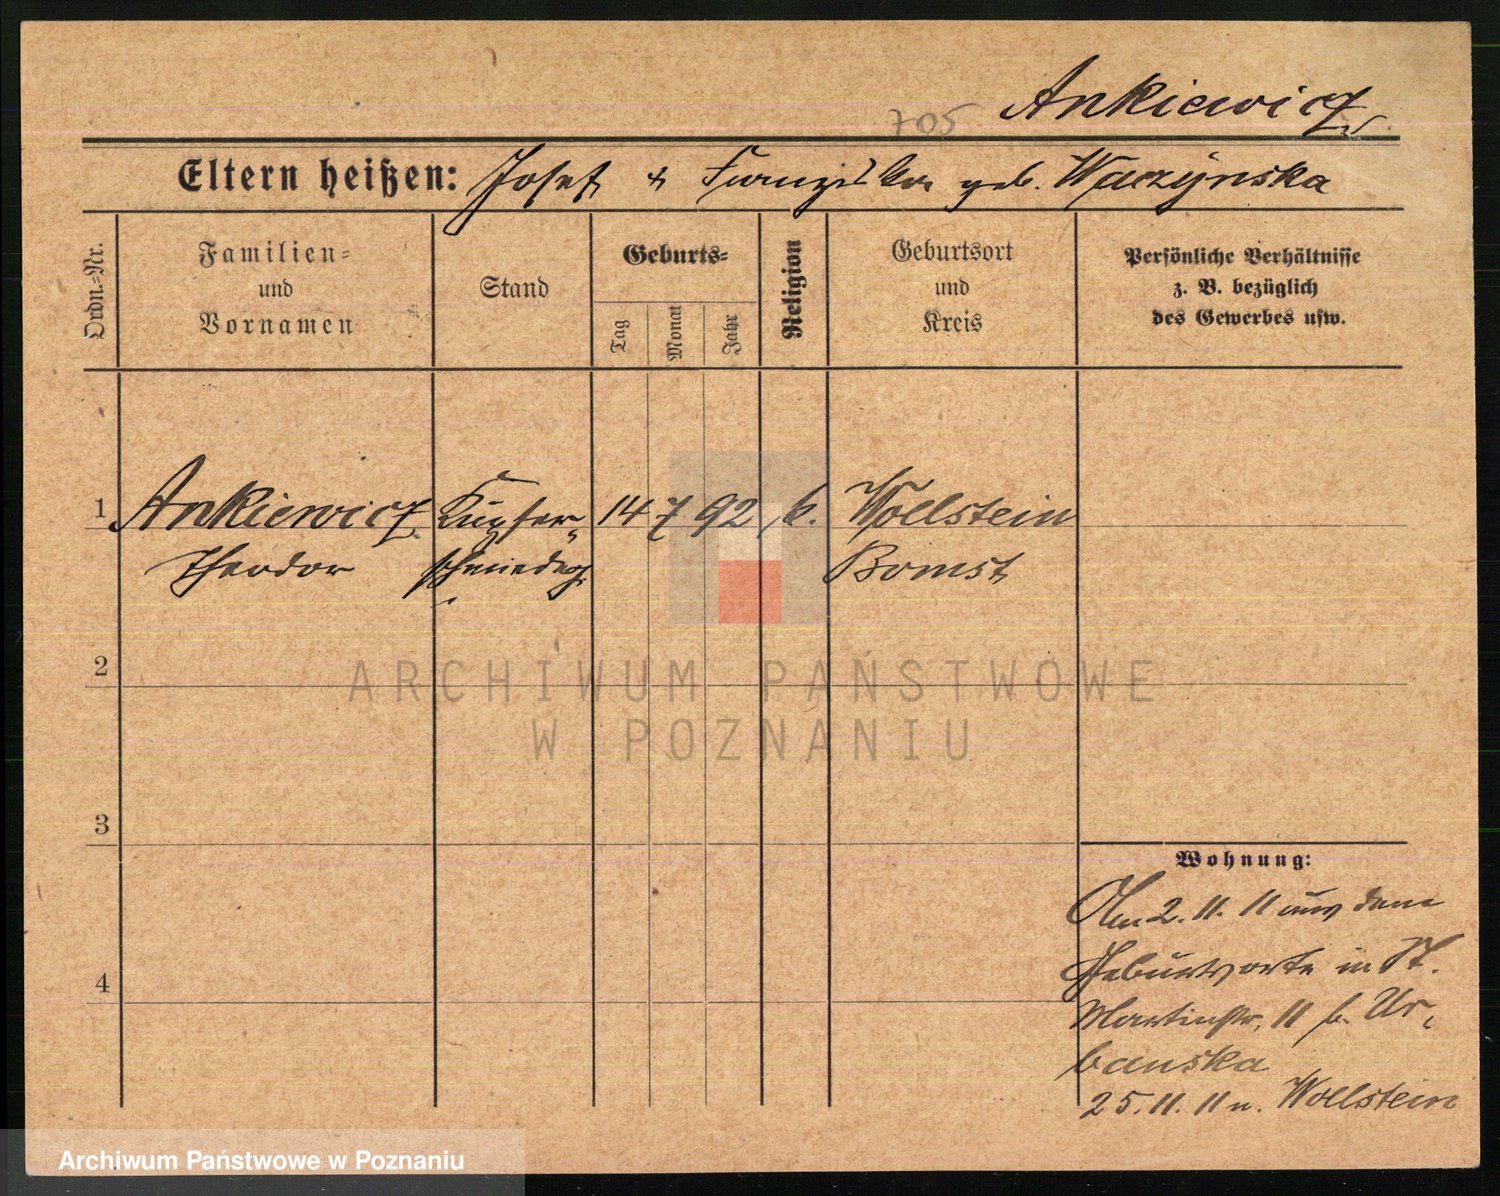 705 Ankiewicz
Eltern heißen: Josef & Franziska geb. Waczynska
Ordn.-Nr.
Familien-
und
Vornamen
Stand
Geburts-
Tag
Monat
Jahr
Religion
Geburtsort
und
Kreis
Persönliche Verhältnisse
z. B. bezüglich
des Gewerbes usw.
1 Ankiewicz Kupfer- 14 7 92 k. Wollstein
Theodor schmiedeg. Bomst
2
3
Wohnung:
Am 2. 11. 11 aus dem
Geburtsorte in St.
4
Martinstr. 11 b. Ur-
banska
25. 11. 11 n. Wollstein
ARCHIWUM PAŃSTWOWE
W POZNANIU
Archiwum Państwowe w Poznaniu